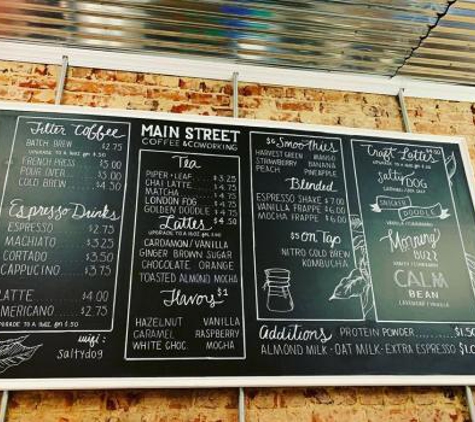 Filter Coffee
BATCH BREW $2.75
UPGRADE TO A 16oz for $.50
FRENCH PRESS $5.00
POUR OVER $5.00
COLD BREW $4.50
Espresso Drinks
UPGRADE TO A 16oz for $.50
ESPRESSO $2.75
MACHIATO $3.25
CORTADO $3.50
CAPPUCINO $3.75
LATTE $4.00
AMERICANO $2.75
UPGRADE TO A 16oz for $.50
luigi:
saltydog
MAIN STREET
COFFEE & COWORKING
Tea
PIPER + LEAF $3.25
CHAI LATTE $4.75
MATCHA $4.75
LONDON FOG $4.75
GOLDEN DOODLE $4.75
Lattes $4.50
UPGRADE TO A 16oz for $.50
CARDAMON / VANILLA
GINGER BROWN SUGAR
CHOCOLATE ORANGE
TOASTED ALMOND MOCHA
Flavors $1
HAZELNUT VANILLA
CARAMEL RASPBERRY
WHITE CHOC. MOCHA
$6 Smoothies
HARVEST GREEN MANGO
STRAWBERRY BANANA
PEACH PINEAPPLE
Blended
ESPRESSO SHAKE $7.00
VANILLA FRAPPE $6.00
MOCHA FRAPPE $6.00
$5 on Tap
NITRO COLD BREW
KOMBUCHA
Craft Lattes $4.50
UPGRADE TO A 16oz for $.50
Salty DOG
SNICKER
DOODLE
Morning
BUZZ
CALM
BEAN
LAVENDER / VANILLA
Additions PROTEIN POWDER $1.50
ALMOND MILK · OAT MILK · EXTRA ESPRESSO